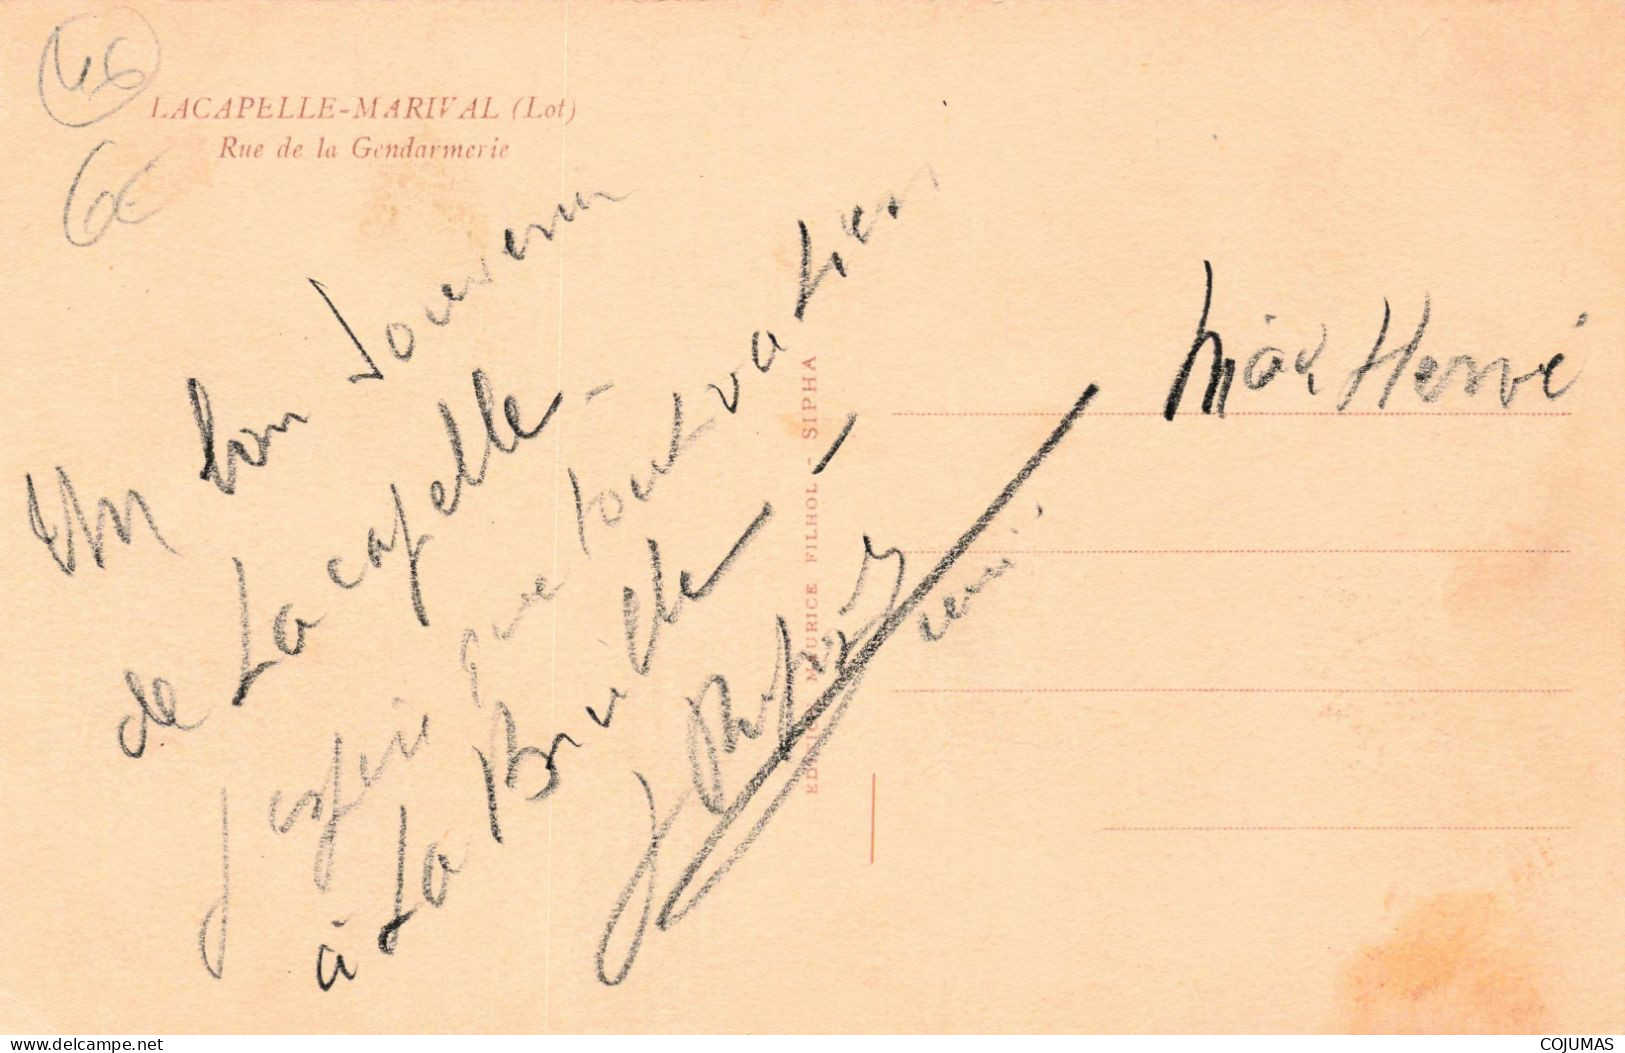 46
LACAPELLE-MARIVAL (Lot)
Rue de la Gendarmerie
6€
Un bon souvenir
de Lacapelle -
J'espère que tout va bien
à La
EDITION MAURICE FILHOL - SIPHA
Max Hervé
www.delcampe.net
COJUMAS